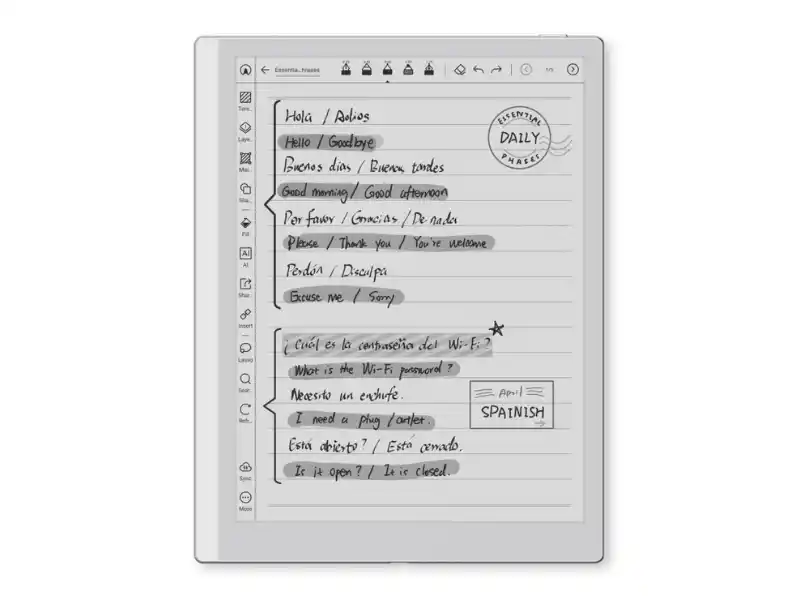 Essentia...hrases
Hola / Adios
Hello / Goodbye
Buenos dias / Buenas tardes
Good morning / Good afternoon
Por favor / Gracias / De nada
Please / Thank you / You're welcome
Perdón / Disculpa
Excuse me / Sorry
ESSENTIAL
DAILY
PHASES
¿Cuál es la contraseña del Wi-Fi?
What is the Wi-Fi password?
Necesito un enchufe.
I need a plug /outlet.
Está abierto? / Está cerrado.
Is it open? / It is closed.
April
SPAINISH
Fill
AI
Insert
Sync
More